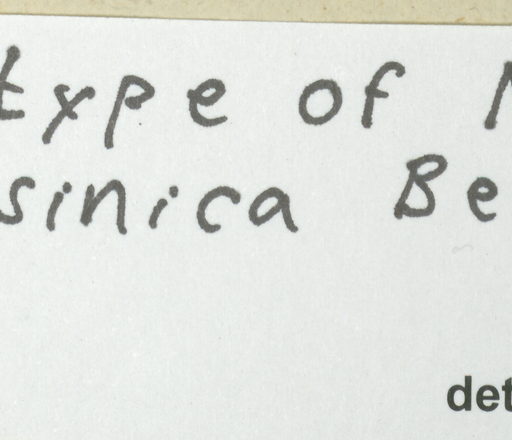 type of
sinica Be
det